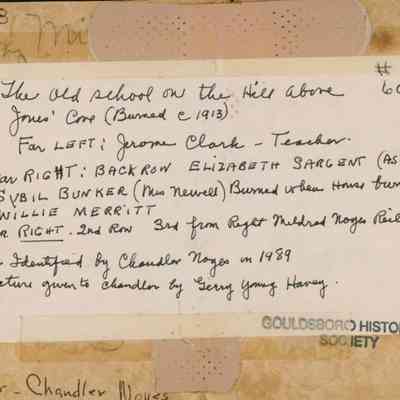 8
The old school on the Hill above
#
60
Jones' Cove (Burned c 1913)
Far LEFT: Jerome Clark - Teacher.
ar RIGHT: BACK ROW ELIZABETH SARGENT (AS
SYBIL BUNKER (Mrs Newell) Burned when House bur
WILLIE MERRITT
R RIGHT. 2nd Row 3rd from Right Mildred Noyes
Identified by Chandler Noyes in 1989
cture given to chandler by Gerry Young Haney.
GOULDSBORO HISTO
SOCIETY
r - Chandler Noyes